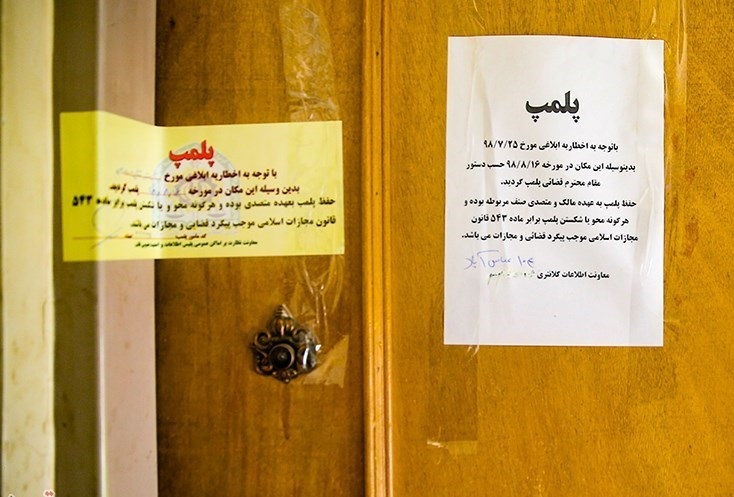 پلمپ
باتوجه به اخطاریه ابلاغی مورخ ۹۸/۷/۲۵
بدینوسیله این مکان در مورخه ۹۸/۸/۱۶ حسب دستور
مقام محترم قضائی پلمپ گردید.
حفظ پلمپ به عهده مالک و متصدی صنف مربوطه بوده و
هرگونه محو یا شکستن پلمپ برابر ماده ۵۴۳ قانون
مجازات اسلامی موجب پیگرد قضائی و مجازات می باشد.
۱۰۳ عباس آباد
معاونت اطلاعات کلانتری
پلمپ
با توجه به اخطاریه ابلاغی مورخ
بدین وسیله این مکان در مورخه پلمپ گردید.
حفظ پلمپ بعهده متصدی بوده و هرگونه محو و یا شکستن پلمپ برابر ماده ۵۴۳
قانون مجازات اسلامی موجب پیگرد قضایی و مجازات می‌باشد.
کد مامور پلمپ:
معاونت نظارت بر اماکن عمومی پلیس اطلاعات و امنیت عمومی فاتب